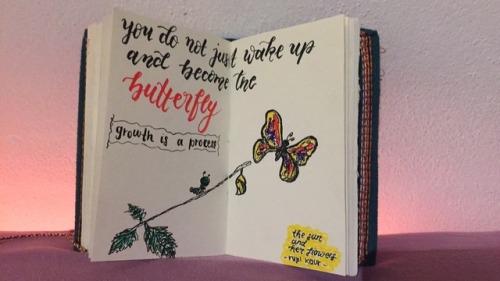 you do not just wake up
and become the
butterfly
growth is a process
the sun
and
her flowers
- rupi kaur -